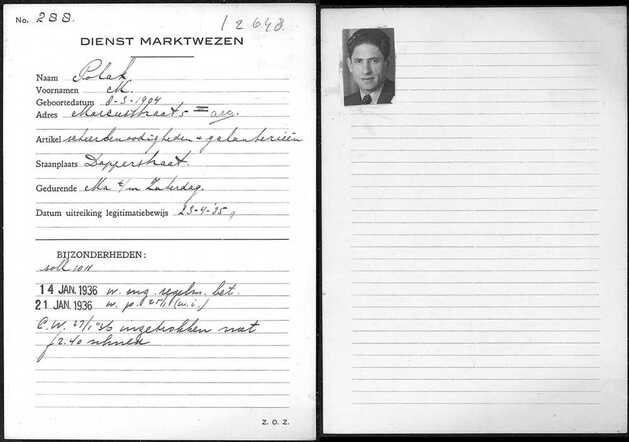 No. 288.
12648.
DIENST MARKTWEZEN
Naam Polak
Voornamen M.
Geboortedatum 8-3-1904
Adres Marcusstraat 5
Artikel scheerbenoodigheden + galanterieën
Staanplaats Dapperstraat.
Gedurende Ma t/m Zaterdag.
Datum uitreiking legitimatiebewijs 23-4-'35
BIJZONDERHEDEN:
soll 1011
14 JAN. 1936 w. ong. regelm. bet.
21 JAN. 1936 w. p. 27/1 (m.i.)
C.W. 27/1 '36 ingetrokken met
f 2.40 schuld
Z. O. Z.